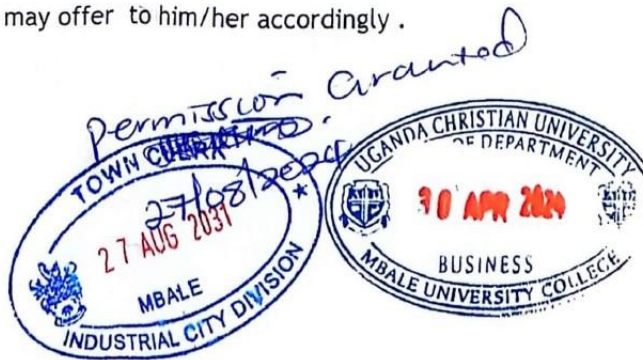 may offer to him/her accordingly .
Permission Granted
27/08/2024
TOWN CLERK
27 AUG 2031
MBALE
INDUSTRIAL CITY DIVISION
UGANDA CHRISTIAN UNIVERSITY
OF DEPARTMENT
30 APR 2024
BUSINESS
MBALE UNIVERSITY COLLEGE